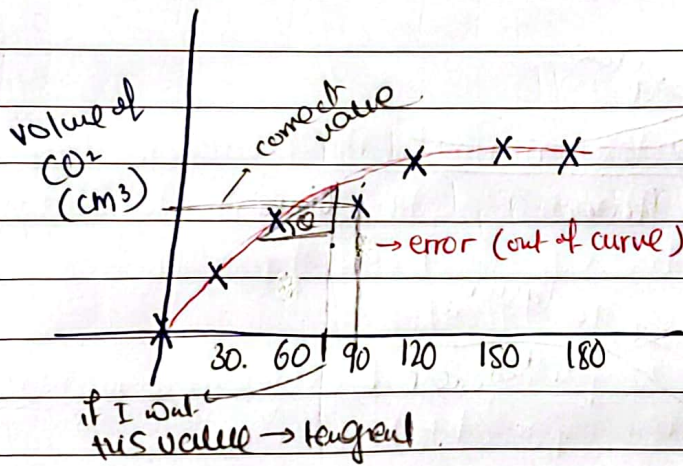 volume of
CO2
(cm3)
correct
value
θ
→ error (out of curve)
30. 60 90 120 150 180
if I want
this value → tangent